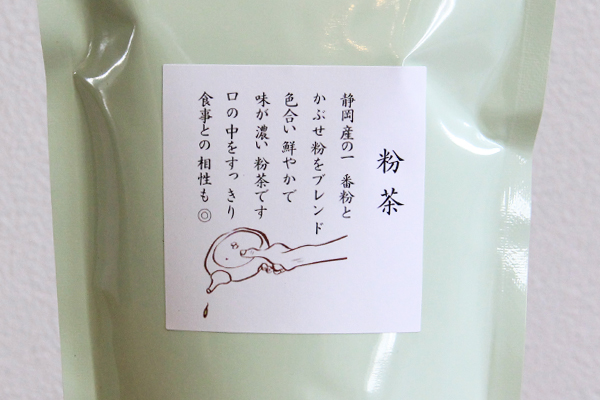 粉茶
静岡産の一番粉と
かぶせ粉をブレンド
色合い鮮やかで
味が濃い粉茶です
口の中をすっきり
食事との相性も◎